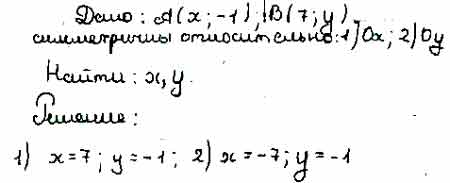 Дано: A(x; -1); B(7; y)
симметричны относительно: 1) Ox; 2) Oy
Найти: x, y.
Решение:
1) x = 7; y = -1; 2) x = -7; y = -1